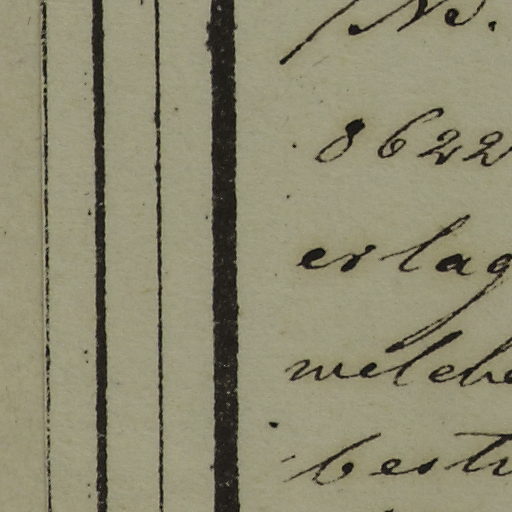 No.
8622
erlag
welche
bestr